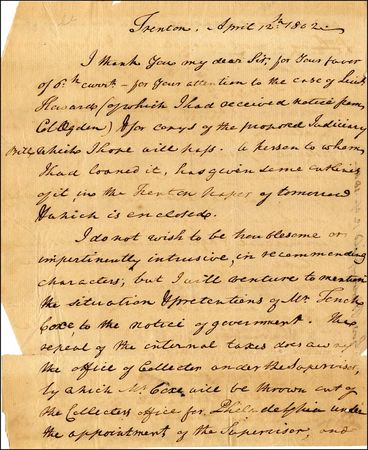 Trenton, April 12th. 1802.
I thank you my dear Sir, for your favor
of 6th. currt. - for your attention to the case of Lieut
Howard (of which I had received notice from
Col Ogden) & for copys of the proposed Judiciary
Bill, which I hope will pass. A person to whom
I had loaned it, has given some outlines
of it, in the Trenton paper of tomorrow
which is enclosed.
I do not wish to be troublesome or
impertinently intrusive, in recommending
characters; but I will venture to mention
the situation & pretentions of Mr. Tench
Coxe, to the notice of government. The
repeal of the internal taxes does away
the office of Collector under the Supervisor,
by which Mr. Coxe will be thrown out of
the Collectors office for Philadelphia under
the appointment of the Supervisor, and